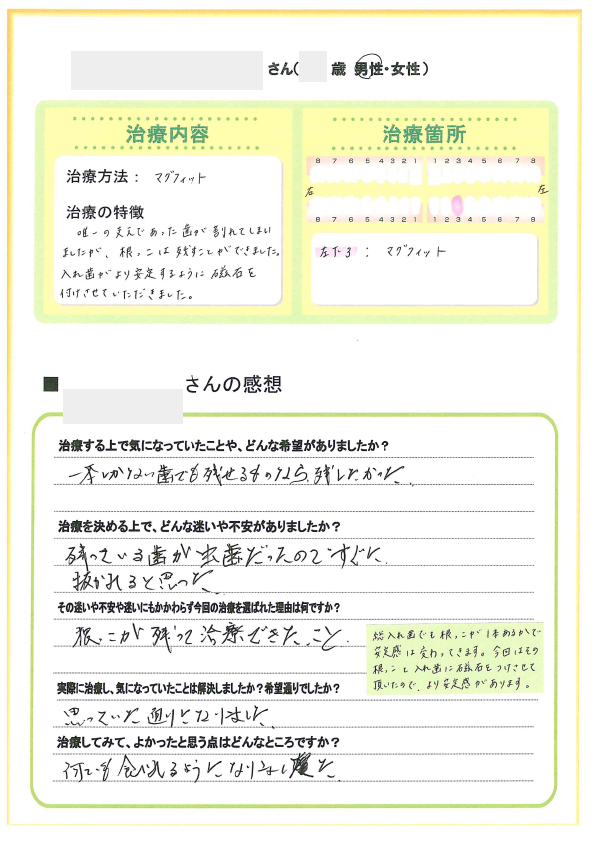 さん( 歳 男性・女性)
治療内容
治療方法： マグフィット
治療の特徴
唯一の支えであった歯が割れてしまい
ましたが、根っこは残すことができました。
入れ歯がより安定するように磁石を
付けさせていただきました。
治療箇所
8 7 6 5 4 3 2 1 1 2 3 4 5 6 7 8
右 左
8 7 6 5 4 3 2 1 1 2 3 4 5 6 7 8
左下3 ： マグフィット
■ さんの感想
治療する上で気になっていたことや、どんな希望がありましたか？
一本しかない歯でも残せるものなら残したかった。
治療を決める上で、どんな迷いや不安がありましたか？
残っている歯が虫歯だったのですぐに
抜かれると思った。
その迷いや不安や迷いにもかかわらず今回の治療を選ばれた理由は何ですか？
根っこが残って治療できたこと。
総入れ歯でも根っこが1本あるかで
安定感は変わってきます。今回はその
根っこと入れ歯に磁石をつけさせて
頂いたので、より安定感があります。
実際に治療し、気になっていたことは解決しましたか？希望通りでしたか？
思っていた通りとなりました。
治療してみて、よかったと思う点はどんなところですか？
何でも食べれるようになりました